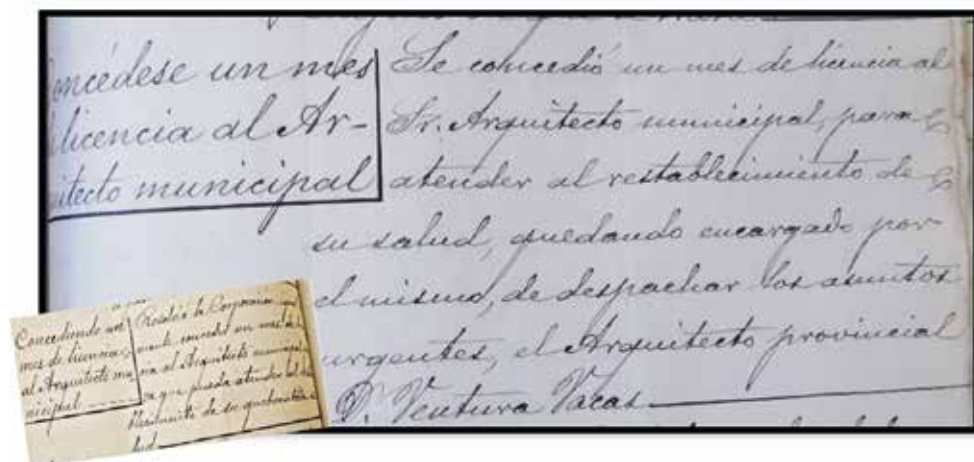 oncédese un mes
licencia al Ar-
uitecto municipal
Se concedió un mes de licencia al
Sr. Arquitecto municipal, para
atender al restablecimiento de
su salud, quedando encargado por
el mismo, de despachar los asuntos
urgentes, el Arquitecto provincial
D. Ventura Vacas
Concediendo un
mes de licencia
al Arquitecto mu
nicipal
Resolvió la Corporación
mente conceder un mes de
al Arquitecto municipal
que pueda atender al
de su quebrantada
lud